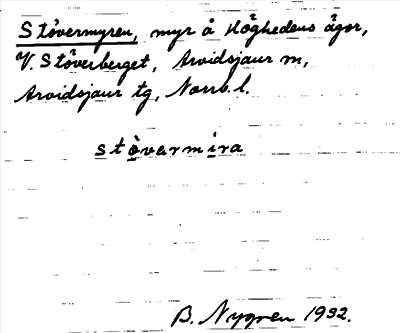 Stövermyren, myr å Höghedens ägor,
V. Stöverberget, Arvidsjaur sn,
Arvidsjaur tg, Norrb. l.
stòvarmíra
B. Nygren 1932.